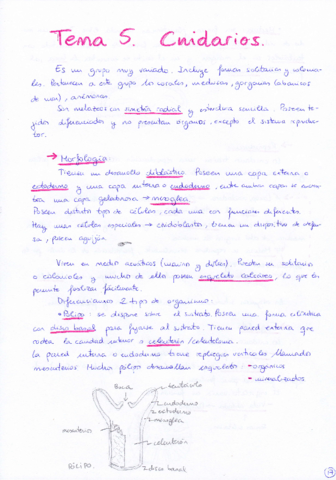 Tema 5. Cnidarios.
Es un grupo muy variado. Incluye formas solitarias y colonia-
les. Pertenecen a este grupo los corales, medusas, gorgonias (abanicos
de mar), anémonas.
Son metazoos con simetría radial y estructura sencilla. Poseen te-
jidos diferenciados y no presentan órganos, excepto el sistema reproduc-
tor.
→ Morfología:
Tienen un desarrollo diblástico. Poseen una capa externa o
ectodermo y una capa interna o endodermo, entre ambas capas se encuen-
tra una capa gelatinosa → mesoglea
Poseen distintos tipos de células, cada una con funciones diferentes.
Hay unas células especiales → cnidoblastos, tienen un dispositivo de defen-
sa, poseen aguijón.
Viven en medios acuáticos (marino y dulce). Pueden ser solitarios
o coloniales y muchos de ellos poseen esqueleto calcáreo, lo que les
permite fosilizar fácilmente.
Diferenciamos 2 tipos de organismo:
• Pólipo: se dispone sobre el sustrato. Posee una forma cilíndrica
con disco basal para fijarse al sustrato. Tienen pared externa que
rodea la cavidad interior o celenterón/
La pared interna o endodermo tiene repliegues verticales llamados
mesenterios. Muchos pólipos desarrollan esqueleto: • orgánicos
• mineralizados
Boca
tentáculo
endodermo
ectodermo
mesoglea
mesenterio
celenterón
PÓLIPO.
disco basal